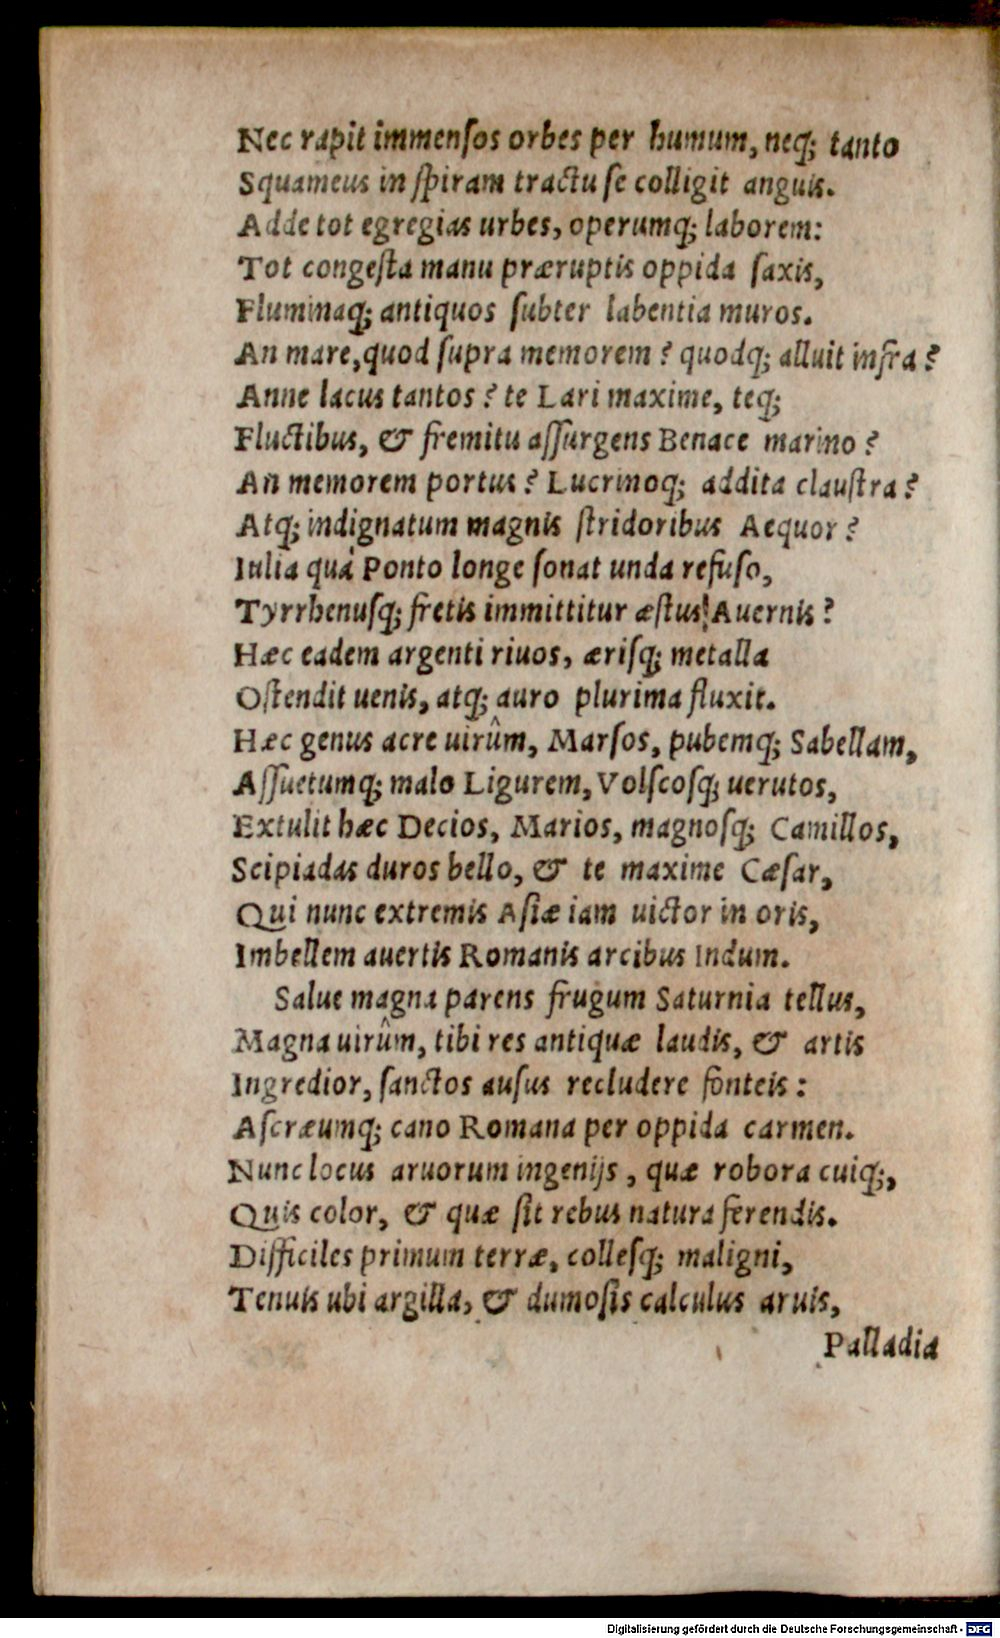 Nec rapit immenſos orbes per humum, neq; tanto
Squameus in ſpiram tractu ſe colligit anguis.
Adde tot egregias urbes, operumq; laborem:
Tot congeſta manu præruptis oppida ſaxis,
Fluminaq; antiquos ſubter labentia muros.
An mare, quod ſupra memorem? quodq; alluit infra?
Anne lacus tantos? te Lari maxime, teq;
Fluctibus, & fremitu aſſurgens Benace marino?
An memorem portus? Lucrinoq; addita clauſtra?
Atq; indignatum magnis ſtridoribus Aequor?
Iulia quà Ponto longe ſonat unda refuſo,
Tyrrhenuſq; fretis immittitur æſtus Auernis?
Hæc eadem argenti riuos, æriſq; metalla
Oſtendit uenis, atq; auro plurima fluxit.
Hæc genus acre uirûm, Marſos, pubemq; Sabellam,
Aſſuetumq; malo Ligurem, Volſcoſq; uerutos,
Extulit hæc Decios, Marios, magnoſq; Camillos,
Scipiadas duros bello, & te maxime Cæſar,
Qui nunc extremis Aſiæ iam uictor in oris,
Imbellem auertis Romanis arcibus Indum.
Salue magna parens frugum Saturnia tellus,
Magna uirûm, tibi res antiquæ laudis, & artis
Ingredior, ſanctos auſus recludere fonteis:
Aſcræumq; cano Romana per oppida carmen.
Nunc locus aruorum ingenijs, quæ robora cuiq;,
Quis color, & quæ ſit rebus natura ferendis.
Difficiles primum terræ, colleſq; maligni,
Tenuis ubi argilla, & dumoſis calculus aruis,
Palladia
Digitalisierung gefördert durch die Deutsche Forschungsgemeinschaft - DFG